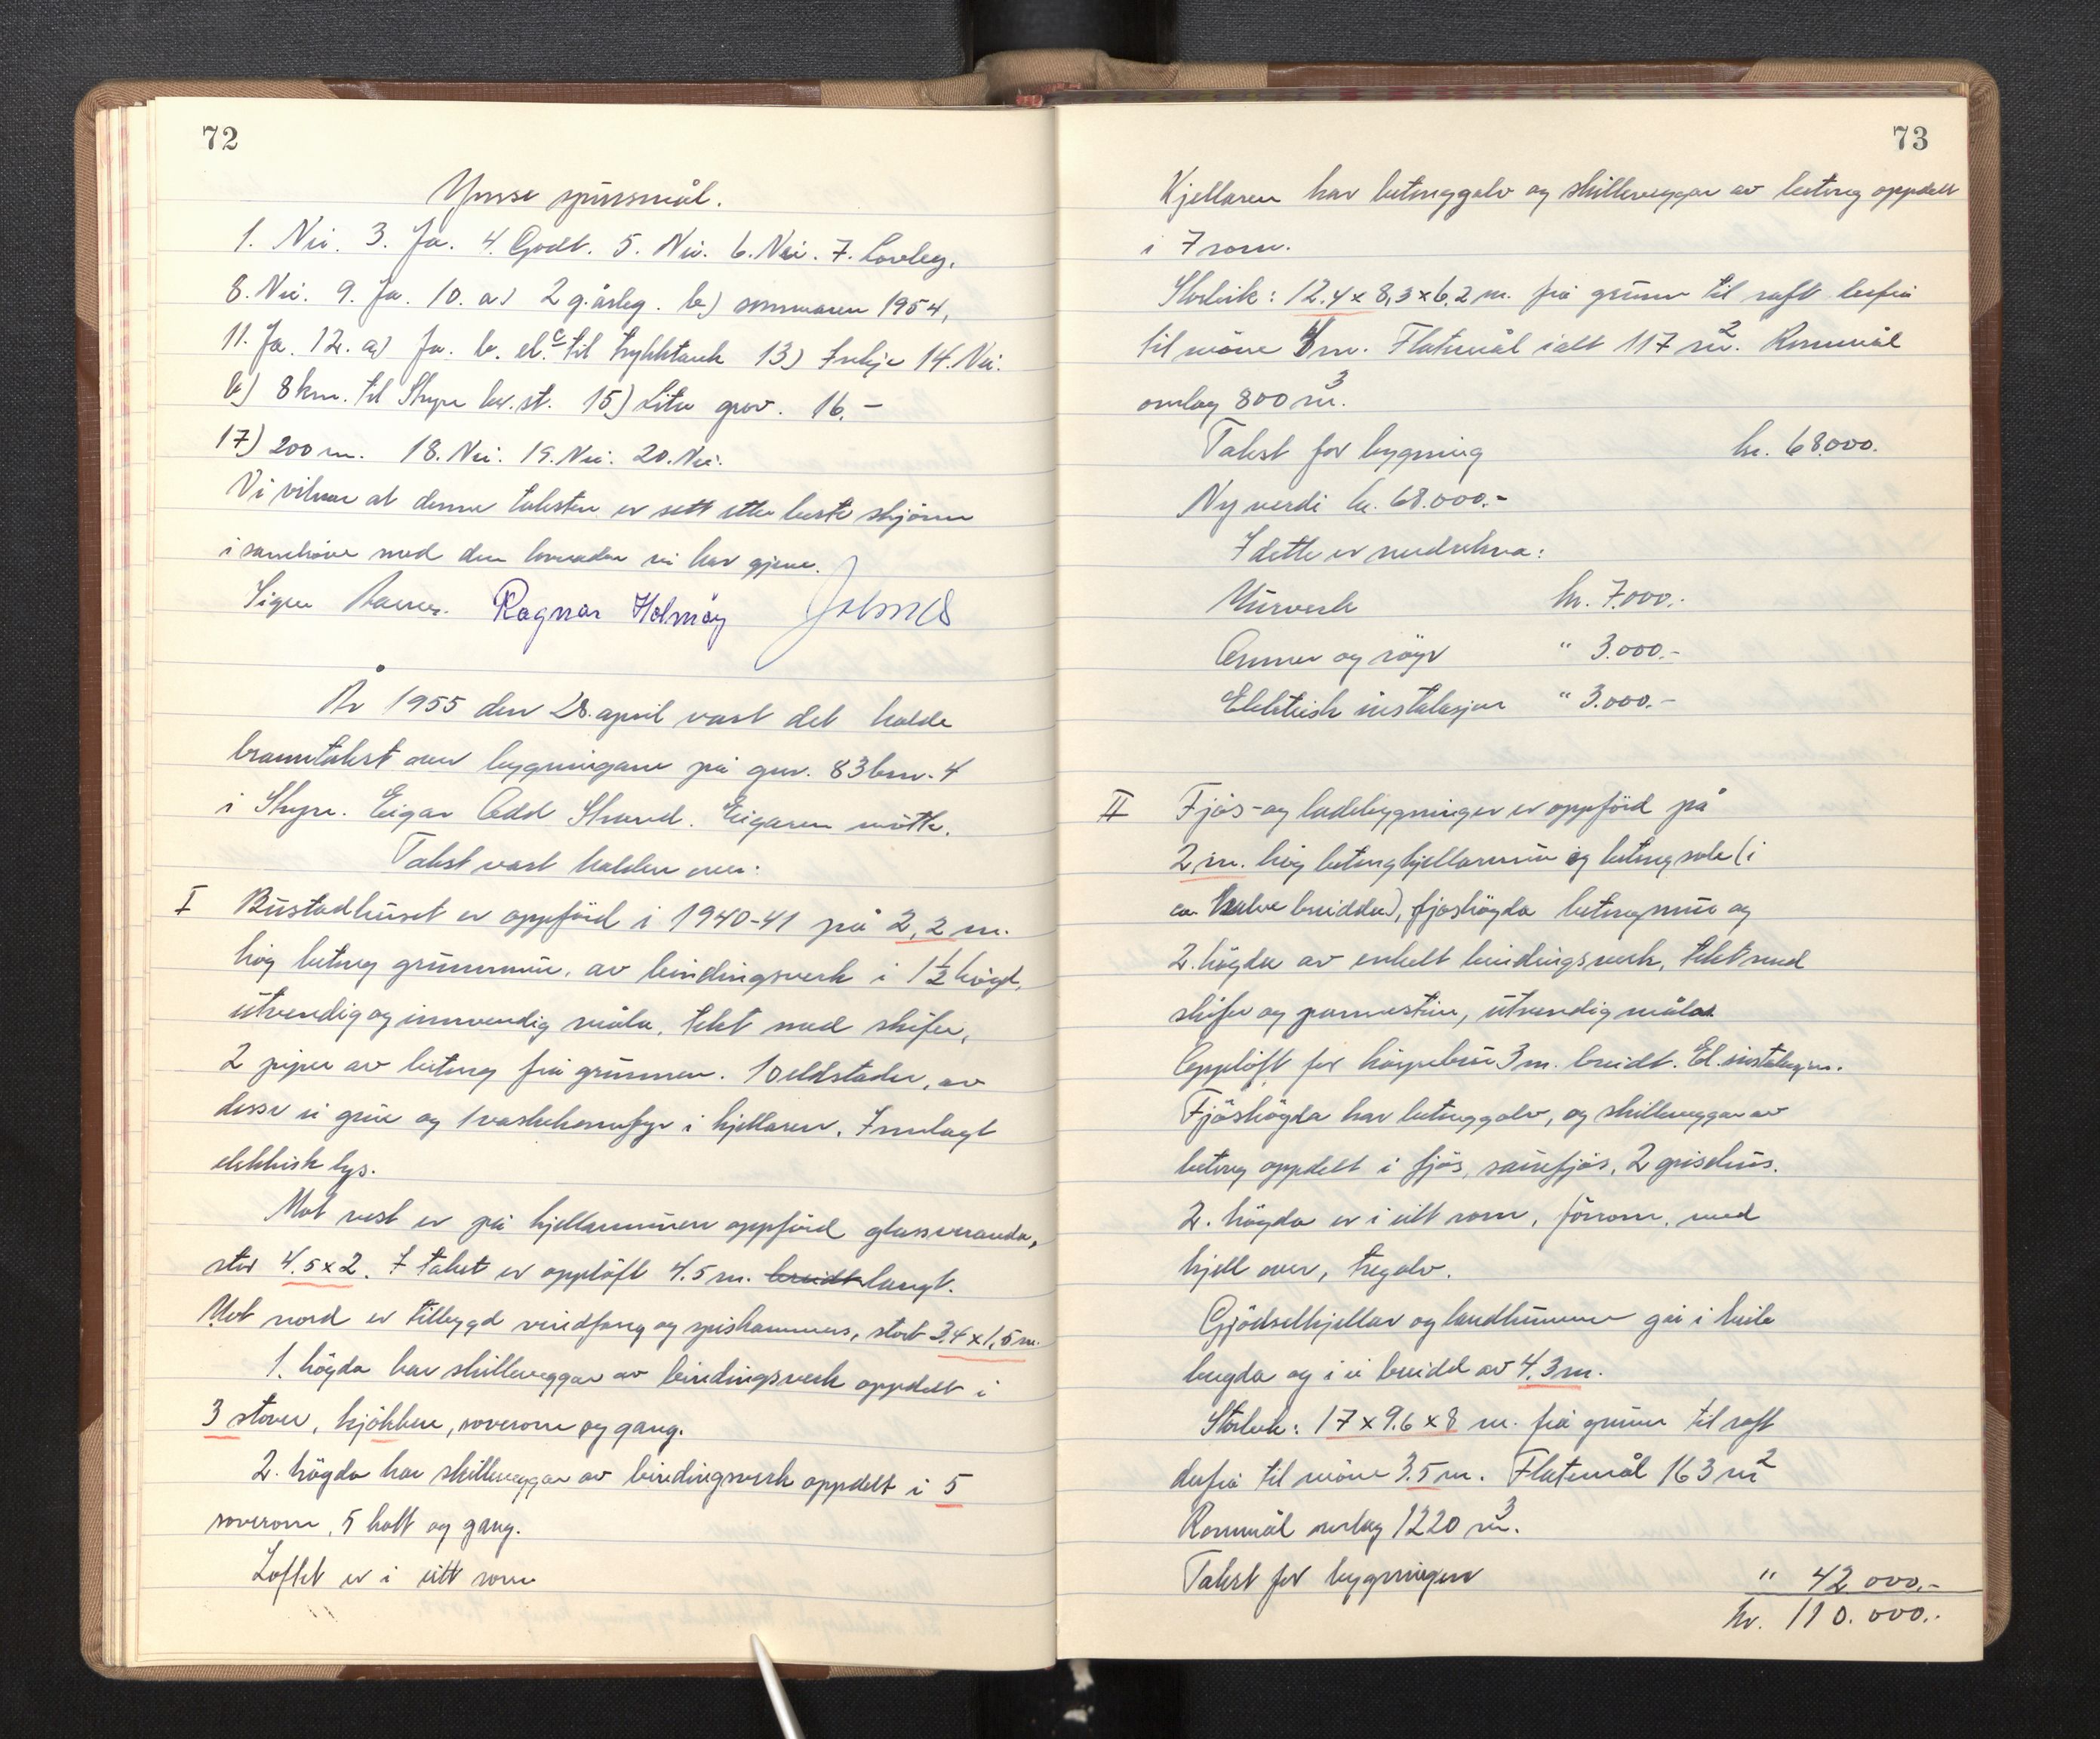 72
Ymse spursmål.
1. Nei. 3. Ja. 4. Godt. 5. Nei. 6. Nei. 7. Lovleg.
8. Nei. 9. Ja. 10. a) 2 g. årleg. b) sommaren 1954,
11. Ja. 12. a) Ja. b. el. til trykktank 13) Inkje 14. Nei.
b) 8 km. til Skyre br. st. 15) Lite grov. 16. –
17) 200 m. 18. Nei. 19. Nei. 20. Nei.
Vi vitnar at denne taksten er sett etter beste skjönn
i samhöve med den lovnaden vi har gjeve.
Signe Ragnar Holmöy
År 1955 den 28. april vart det halde
branntakst over bygningane på gnr. 83 bnr. 4
i Skyre. Eigar Odd Strand. Eigaren mötte.
Takst vart halden over:
I Bustadhuset er oppförd i 1940-41 på 2,2 m.
hög betong grunnmur, av bindingsverk i 1½ högd,
utvendig og innvendig måla, tekt med skifer,
2 piper av betong frå grunnen. 10 eldstader, av
desse ei grue og 1 vaskekomfyr i kjellaren. Innlagt
elektrisk lys.
Mot vest er på kjellarmuren oppförd glassveranda,
stor 4.5 x 2. I taket er opplöft 4.5 m. breidt langt.
Mot nord er tilbygd vindfang og spiskammers, stort 3.4 x 1,5 m.
1. högda har skilleveggar av bindingsverk oppdelt i
3 stover, kjökken, soverom og gang.
2. högda har skilleveggar av bindingsverk oppdelt i 5
soverom, 5 kott og gang.
Loftet er i eitt rom
73
Kjellaren har betonggolv og skilleveggar av betong oppdelt
i 7 rom.
Storleik: 12.4 x 8,3 x 6,2 m. frå grunn til raft derfrå
til möne m. Flatemål ialt 117 m². Rommål
omlag 800 m³.
Takst for bygning kr. 68.000.
Ny verdi kr. 68.000.-
I dette er medrekna:
Murverk kr. 7.000.-
Omner og röyr " 3.000.-
Elektrisk instalasjon " 3.000.-
II Fjös- og ladebygningen er oppförd på
2, m. hög betongkjellarmur og betongsole (i
ca. halve breidda), fjöshögda betongmur og
2. högda av enkelt bindingsverk, tekt med
skifer og pannestein, utvendig måla
Opplöft for köyrebru 3 m. breidt. El. instalasjon.
Fjöshögda har betonggolv, og skilleveggar av
betong oppdelt i fjös, sauefjös, 2 grisehus.
2. högda er i eitt rom, fôrrom, med
hjell over, tregolv.
Gjödselkjellar og landkummen går i heile
lengda og i ei breidd av 4,3 m.
Storleik: 17 x 9.6 x 8 m. frå grunn til raft
derfrå til möne 3.5 m. Flatemål 163 m²
Rommål omlag 1220 m³.
Takst for bygningen " 42 000.-
kr. 110.000.-